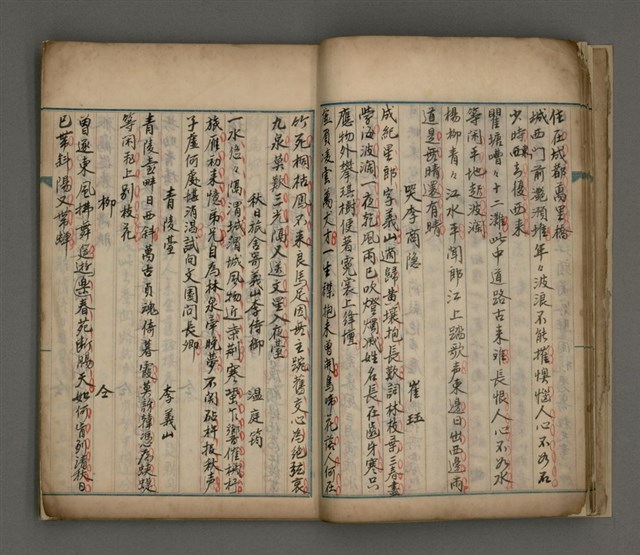 住在成都萬里橋
城西門前灧澦堆年々波浪不能摧懊惱人心不如石
少時西去復西來
瞿塘嘈々十二灘此中道路古來難長恨人心不如水
等閑平地起波瀾
楊柳青々江水平聞郎江上踏歌聲東邊日出西邊雨
道是無晴還有晴
哭李商隱 崔珏
成紀星郎字義山適歸黃壤抱長歎詞林枝葉三春盡
學海波瀾一夜乾風雨已吹燈燭滅姓名長在齒牙寒只
應物外攀琪樹便著霓裳上絳壇
虛負凌雲萬丈才一生襟抱未曾開鳥啼花落人何在
竹死桐枯鳳不來良馬足因無主踠舊交心為絕絃哀
九泉莫歎三光隔又送文星入夜臺
秋日旅舍寄義山李侍御 溫庭筠
一水悠々隔渭城渭城風物近柴荆寒蛩乍響催機杼
旅雁初來憶弟兄自為林泉牽曉夢不關砧杵報秋聲
子虛何處堪消渴試向文園問長卿
青陵臺 李義山
青陵臺畔日西斜萬古貞魂倚暮霞莫訝韓憑為蛺蝶
等閑飛上別枝花
柳 仝
曾逐東風拂舞筵樂春苑斷腸天如何肯到清秋日
已帶斜陽又帶蟬